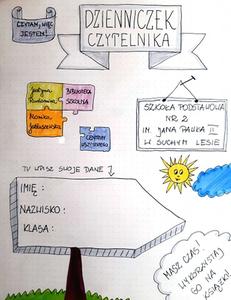 CZYTAM, WIĘC
JESTEM!
DZIENNICZEK
CZYTELNIKA
Justyna
BIBLIOTEKA
SZKOLNA
Monika
CENTRUM
SZKOŁA PODSTAWOWA
NR 2
IM. JANA PAWŁA II
W SUCHYM LESIE
TU WPISZ SWOJE DANE
IMIĘ:
NAZWISKO:
KLASA:
MASZ CZAS?
WYKORZYSTAJ
GO NA
KSIĄŻKI!